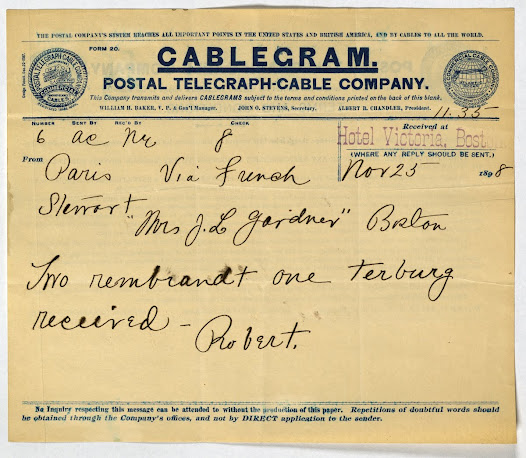 THE POSTAL COMPANY'S SYSTEM REACHES ALL IMPORTANT POINTS IN THE UNITED STATES AND BRITISH AMERICA, AND BY CABLES TO ALL THE WORLD.
FORM 20.
CABLEGRAM.
POSTAL TELEGRAPH-CABLE COMPANY.
This Company transmits and delivers CABLEGRAMS subject to the terms and conditions printed on the back of this blank.
WILLIAM H. BAKER, V. P. & Gen'l Manager. JOHN O. STEVENS, Secretary. ALBERT B. CHANDLER, President.
11:35
NUMBER SENT BY REC'D BY CHECK
Received at
6 ac 8
Hotel Victoria, Bost
(WHERE ANY REPLY SHOULD BE SENT.)
From Paris Via French Nov 25 1898
Stewart
"Mrs J. L Gardner" Boston
Two rembrandt one terburg
received - Robert.
No Inquiry respecting this message can be attended to without the production of this paper. Repetitions of doubtful words should
be obtained through the Company's offices, and not by DIRECT application to the sender.